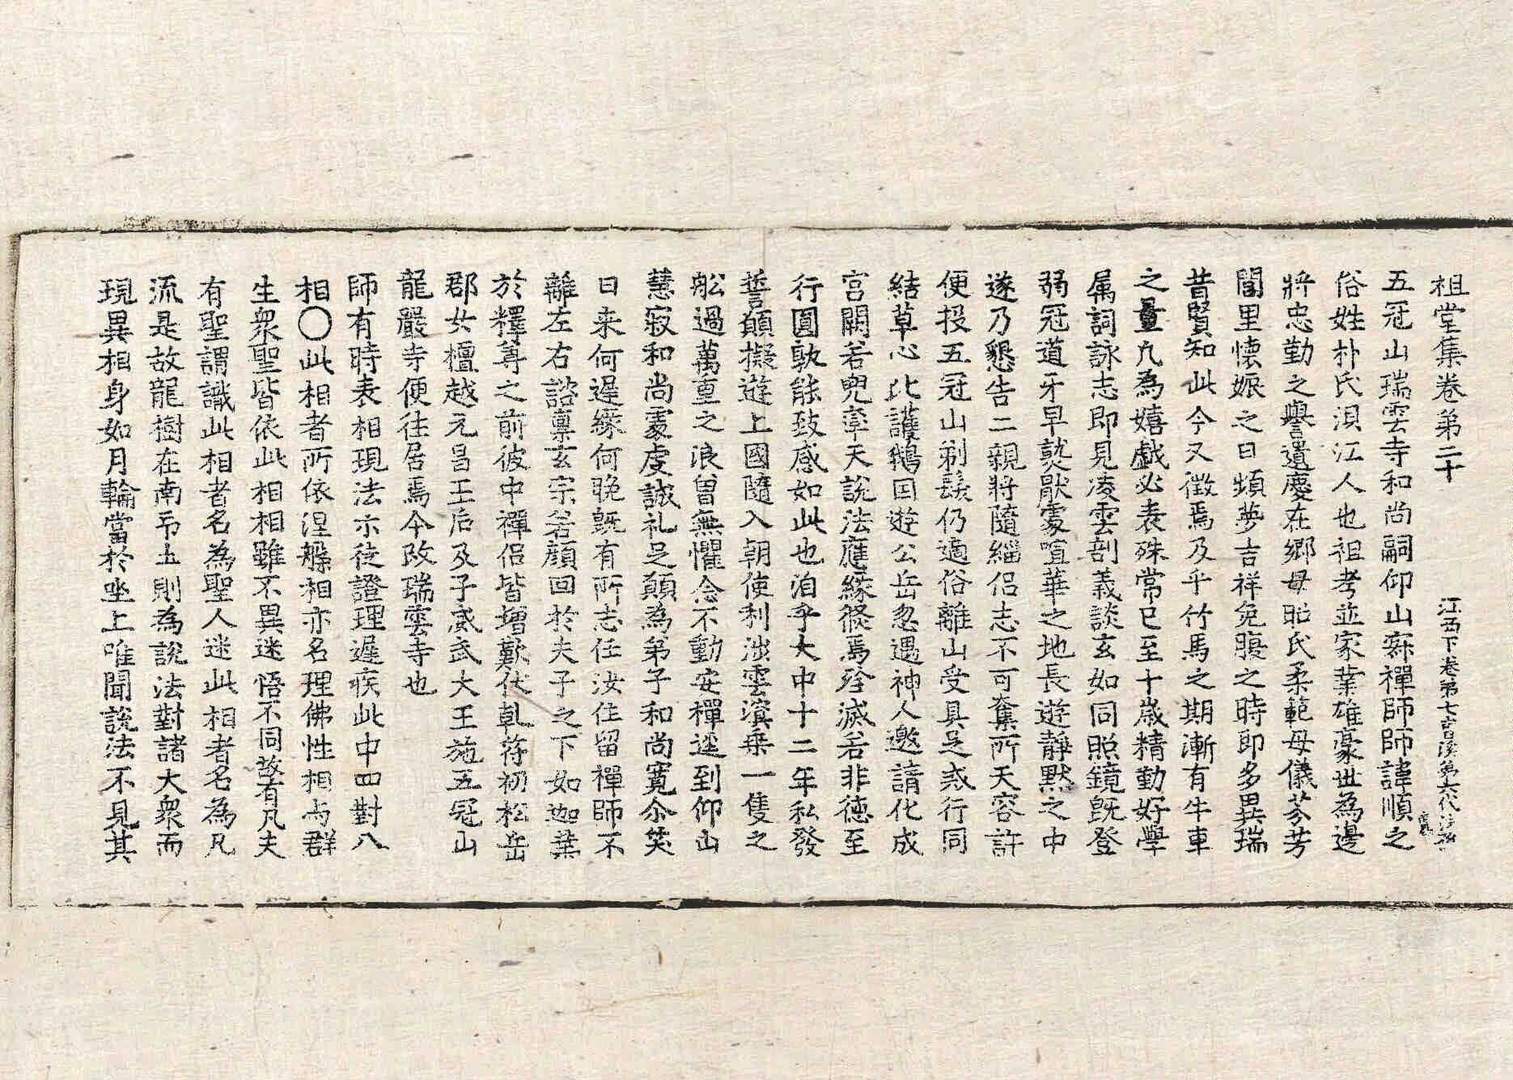 祖堂集卷第二十 江西下卷第七曺溪第六代法孫
五冠山瑞雲寺和尚嗣仰山寂禪師師諱順之
俗姓朴氏浿江人也祖考並家業雄豪世為邊
將忠勤之譽遺慶在鄉母昭氏柔範母儀芬芳
閭里懷娠之日頻夢吉祥免腹之時即多異瑞
昔賢知此今又徵焉及乎竹馬之期漸有牛車
之量凡為嬉戲必表殊常已至十歲精勤好學
属詞詠志即見凌雲剖義談玄如同照鏡既登
弱冠道牙早熟猒處喧華之地長遊靜默之中
遂乃懇告二親將隨緇侶志不可奪所天容許
便投五冠山剃髮仍適俗離山受具足戒行同
結草心比護鵝因遊公岳忽遇神人邀請化成
宮闕若兜率天說法應緣倏焉殄滅若非德至
行圓孰能致感如此也洎乎大中十二年私發
誓願擬遊上國隨入朝使利涉雲濱乗一隻之
舩過萬重之浪曽無懼念不動安禪逕到仰山
慧寂和尚處虔誠礼足願為弟子和尚寬尒笑
日来何遲緣何晚既有所志任汝住留禪師不
離左右諮稟玄宗若顔回於夫子之下如迦葉
於釋尊之前彼中禪侶皆增歎伏乹符初松岳
郡女檀越元昌王后及子威武大王施五冠山
龍嚴寺便往居焉今改瑞雲寺也
師有時表相現法示徒證理遲疾此中四對八
相〇此相者所依涅槃相亦名理佛性相与群
生衆聖皆依此相相雖不異迷悟不同故有凡夫
有聖謂識此相者名為聖人迷此相者名為凡
流是故龍樹在南印土則為說法對諸大衆而
現異相身如月輪當於坐上唯聞說法不見其